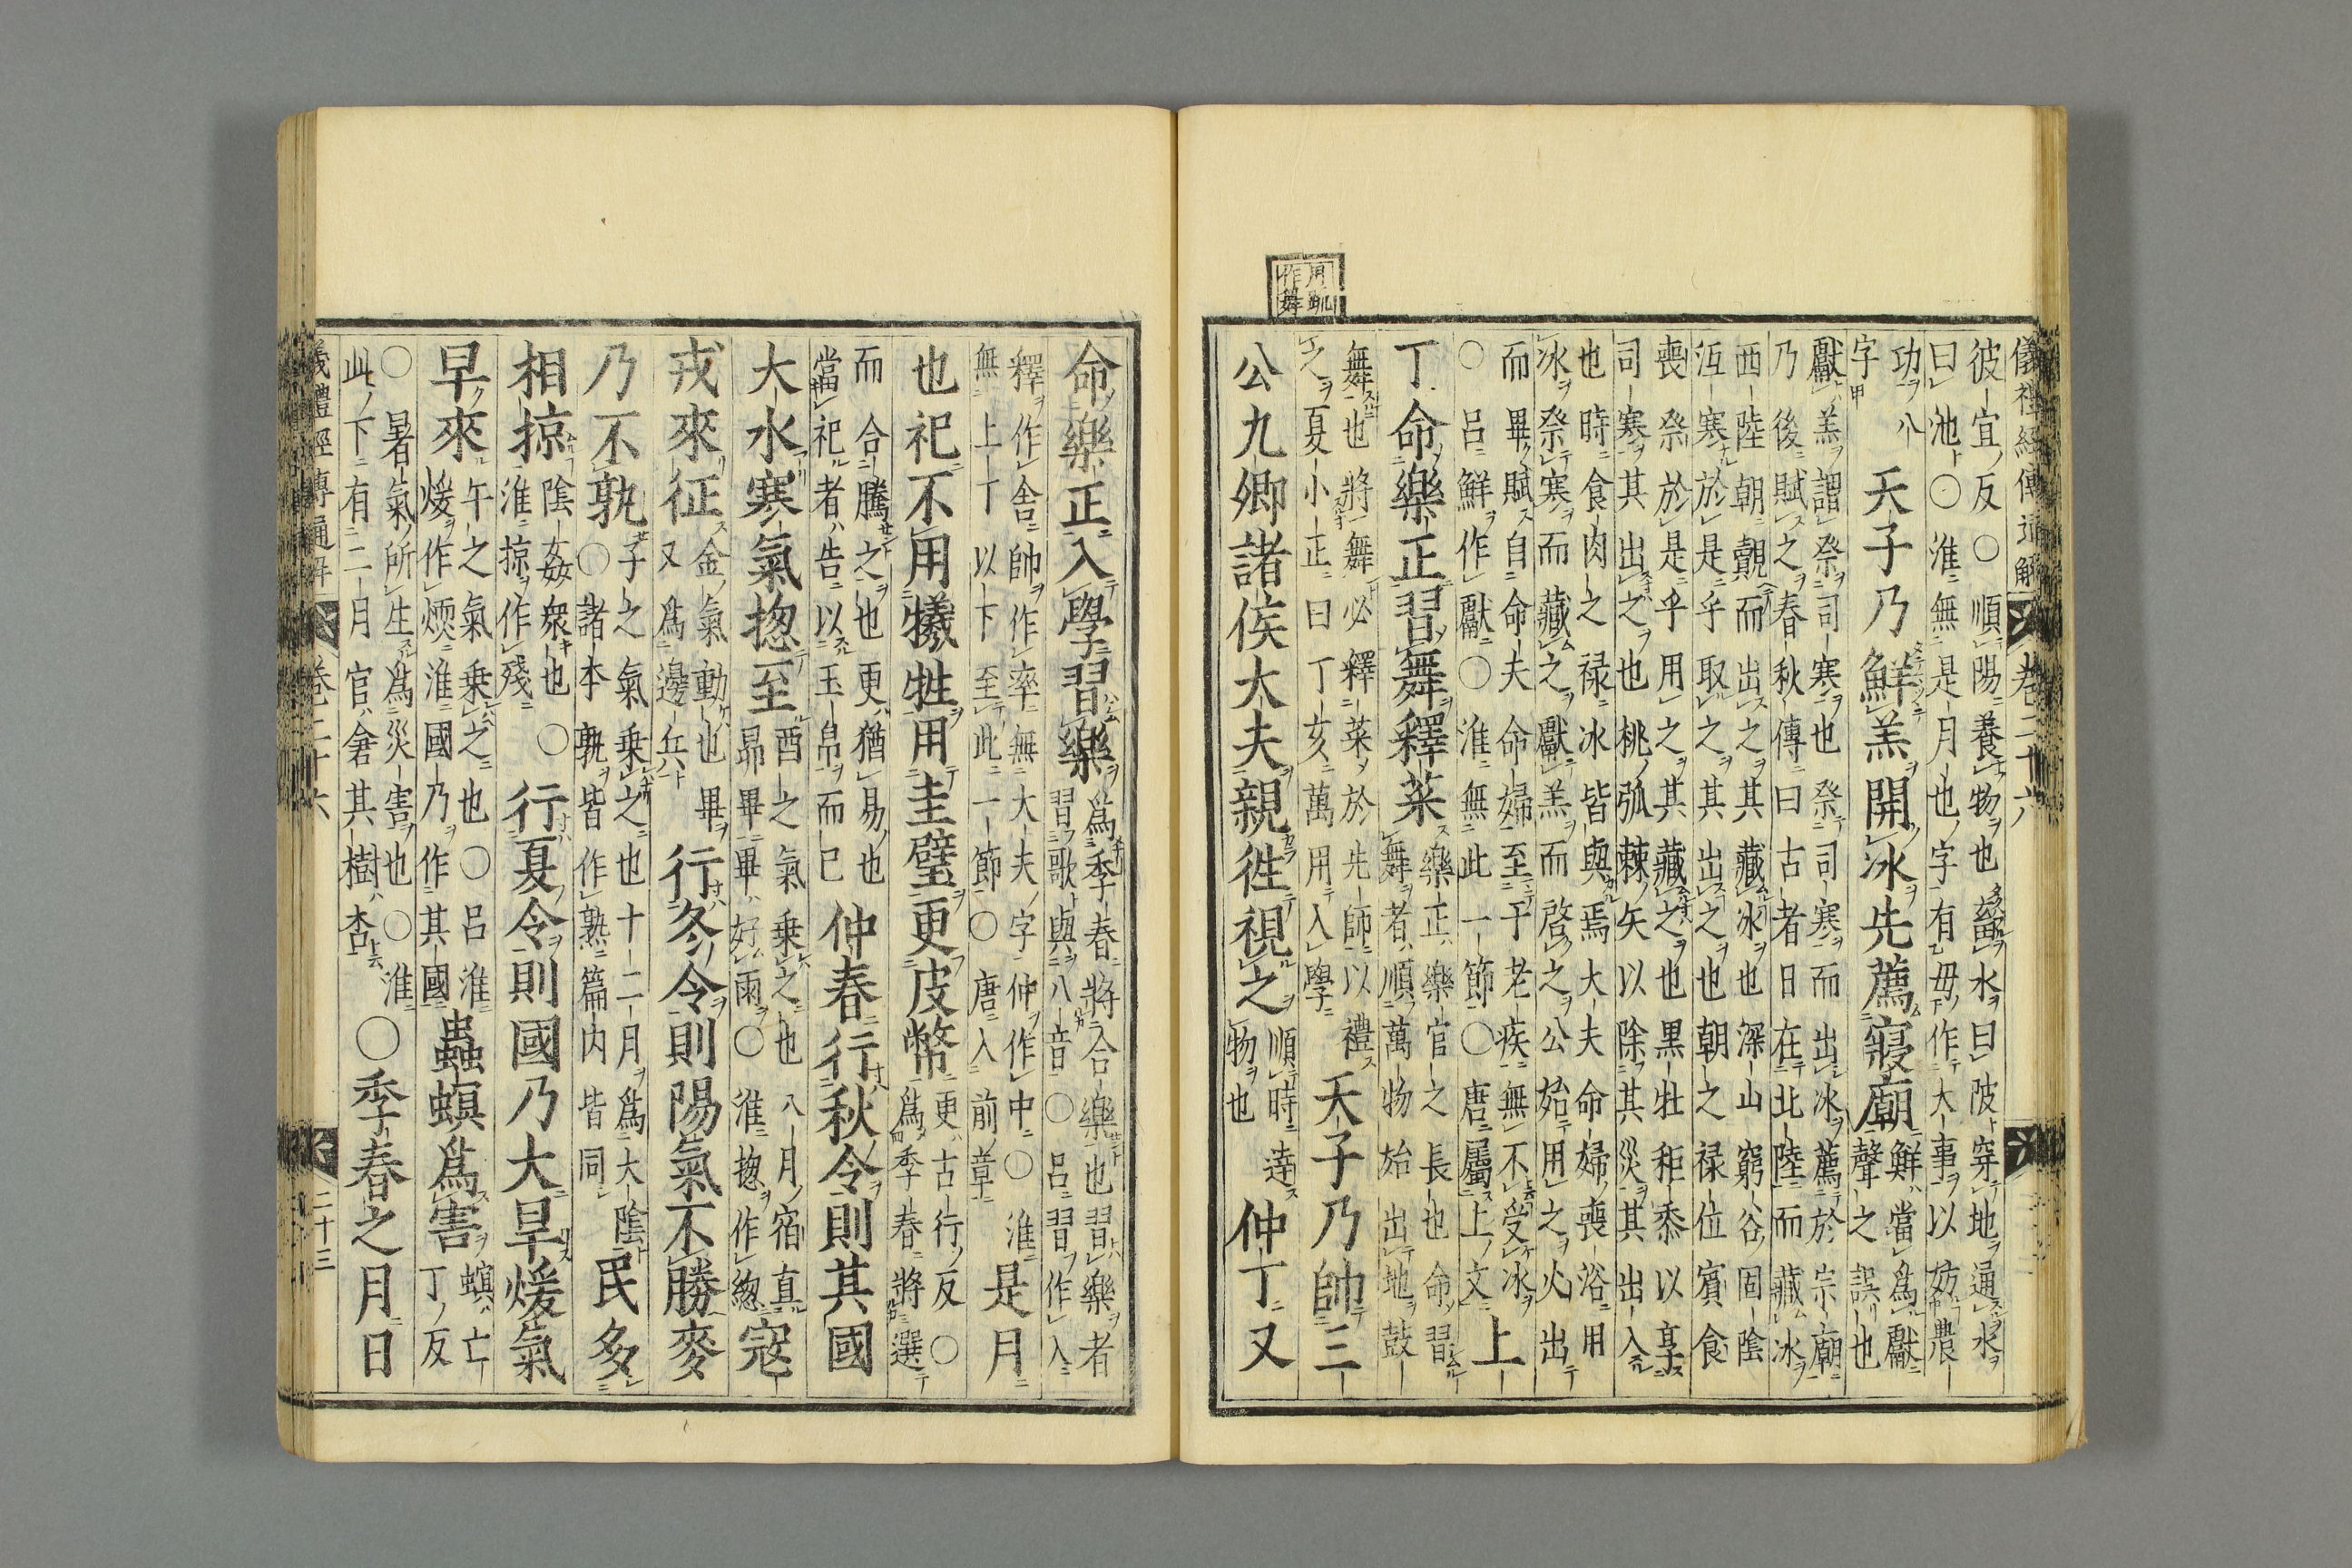 儀禮經傳通解 卷二十六
彼宜反○順陽養物也畜水曰陂穿地通水
曰池○淮無是月也字有毋作大事以妨農
功八
字
天子乃鮮羔開冰先薦寢廟
鮮當爲獻
聲之誤也
獻羔謂祭司寒也祭司寒而出冰薦於宗廟
乃後賦之春秋傳曰古者日在北陸而藏冰
西陸朝覿而出之其藏冰也深山窮谷固陰
沍寒於是乎取之其出之也朝之禄位賓食
喪祭於是乎用之其藏之也黑牡秬黍以享
司寒其出之也桃弧棘矢以除其災其出入
也時食肉之禄冰皆與焉大夫命婦喪浴用
冰祭寒而藏之獻羔而啓之公始用之火出
而畢賦自命夫命婦至于老疾無不受冰
○呂鮮作獻○淮無此一節○唐屬上文
上
丁命樂正習舞釋菜
樂正樂官之長也命習
舞者順萬物始出地鼓
舞也將舞必釋菜於先師以禮
之夏小正曰丁亥萬用入學
天子乃帥三
公九卿諸侯大夫親徃視之
順時達
物也
仲丁又
用䡄
作舞
命樂正入學習樂
爲季春將合樂也習樂者
習歌與八音○呂習作入
釋作舍帥作率無大夫字仲作中○淮
無上丁以下至此一節○唐入前章
是月
也祀不用犧牲用圭璧更皮幣
更古行反○
爲季春將選
而合騰之也更猶易也
當祀者告以玉帛而已
仲春行秋令則其國
大水寒氣揔至
酉之氣乗之也八月宿直
昴畢畢好雨○淮揔作緫
寇
戎來征
金氣動也畢
又爲邊兵
行冬令則陽氣不勝麥
乃不孰
子之氣乗之也十二月爲大陰
○諸本孰皆作熟篇内皆同
民多
相掠
陰姦衆也○
淮掠作殘
行夏令則國乃大旱煖氣
早來
午之氣乗之也○呂淮
煖作煗淮國乃作其國
蟲螟爲害
螟亡
丁反
○暑氣所生爲災害也○淮
此下有二月官倉其樹杏
○季春之月日
儀禮經傳通解 卷二十六 二十三